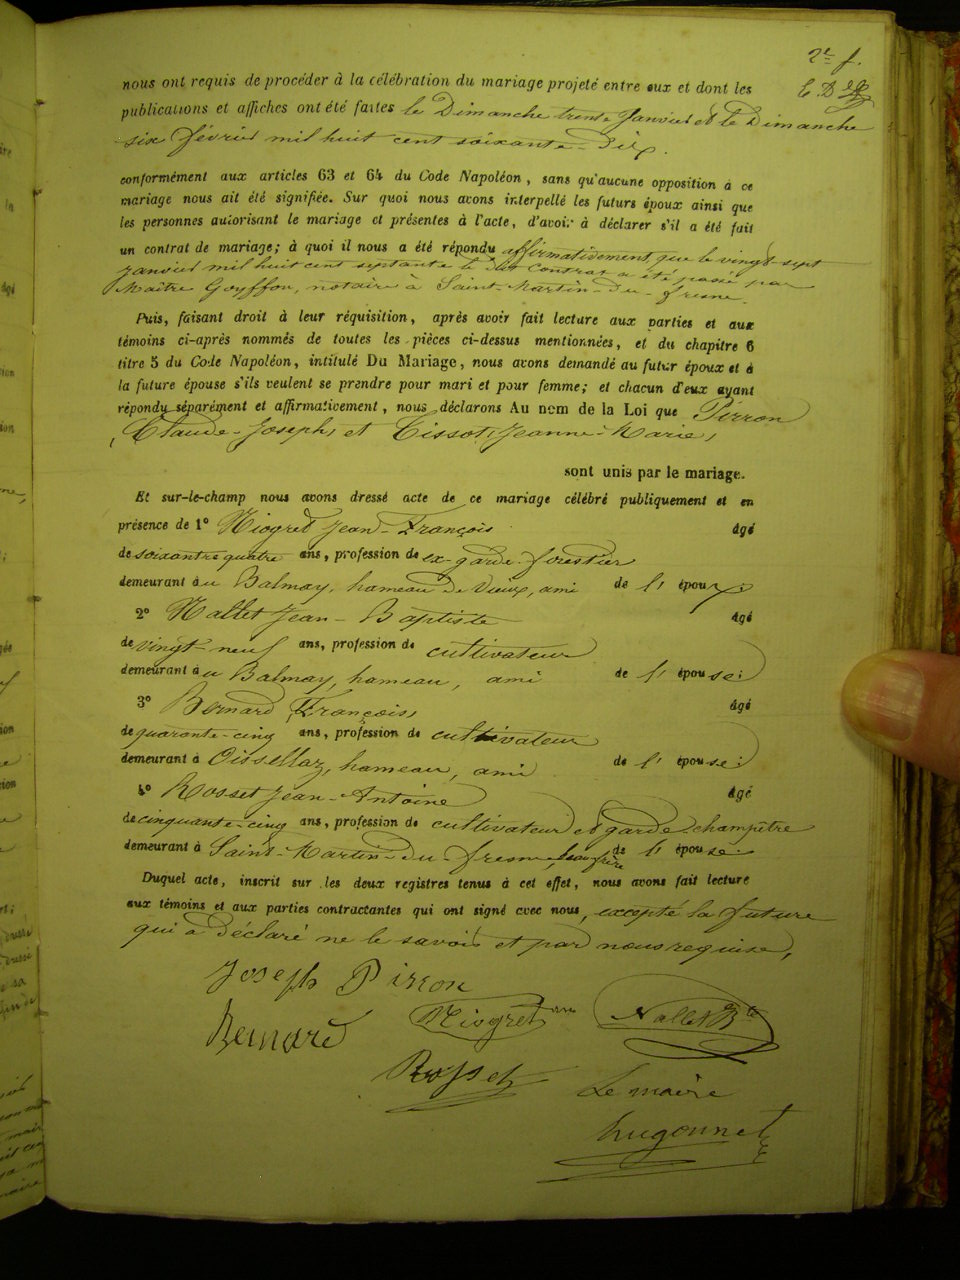 2e f.
nous ont requis de procéder à la célébration du mariage projeté entre eux et dont les
publications et affiches ont été faites le Dimanche trente Janvier et le Dimanche
six février mil huit cent soixante-Dix.
conformément aux articles 63 et 64 du Code Napoléon, sans qu'aucune opposition à ce
mariage nous ait été signifiée. Sur quoi nous avons interpellé les futurs époux ainsi que
les personnes autorisant le mariage et présentes à l'acte, d'avoir à déclarer s'il a été fait
un contrat de mariage; à quoi il nous a été répondu affirmativement, que le vingt-sept
janvier mil huit cent septante le dit Contrat a été passé par
Maître Goyffon, notaire à Saint-Martin-du-fresne.
Puis, faisant droit à leur réquisition, après avoir fait lecture aux parties et aux
témoins ci-après nommés de toutes les pièces ci-dessus mentionnées, et du chapitre 6
titre 5 du Code Napoléon, intitulé Du Mariage, nous avons demandé au futur époux et à
la future épouse s'ils veulent se prendre pour mari et pour femme; et chacun d'eux ayant
répondu séparément et affirmativement, nous déclarons Au nom de la Loi que Pirron
Claude-Joseph, et Tissot, Jeanne-Marie,
sont unis par le mariage.
Et sur-le-champ nous avons dressé acte de ce mariage célébré publiquement et en
présence de 1° Niogret Jean-François âgé
de soixante quatre ans, profession de ex-garde-forestier
demeurant à u Balmay, hameau De Vieux, ami de l'époux;
2° Nallet Jean-Baptiste âgé
de vingt-neuf ans, profession de cultivateur
demeurant à u Balmay, hameau, ami de l'épouse;
3° Bernard François, âgé
de quarante-cinq ans, profession de cultivateur
demeurant à Oissellaz, hameau, ami de l'épouse;
4° Rosset Jean-Antoine âgé
de cinquante-cinq ans, profession de cultivateur et garde-champêtre
demeurant à Saint-Martin-du-fresne, beau frère de l'épouse.
Duquel acte, inscrit sur les deux registres tenus à cet effet, nous avons fait lecture
aux témoins et aux parties contractantes qui ont signé avec nous, excepté la future
qui a déclaré ne le savoir et par nous requise,
Joseph Pirron
Bernard Niogret Nallet Bte
Rosset Le maire
hugonnet